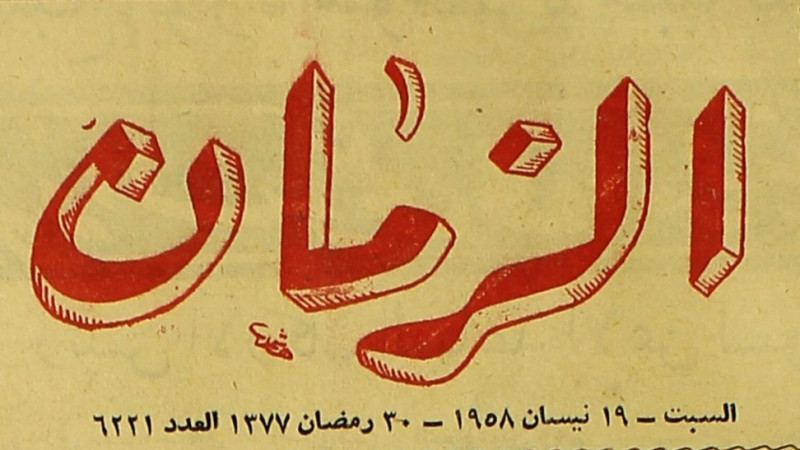 الزمان
السبت ـ ١٩ نيسان ١٩٥٨ ـ ٣٠ رمضان ١٣٧٧ العدد ٦٢٢١